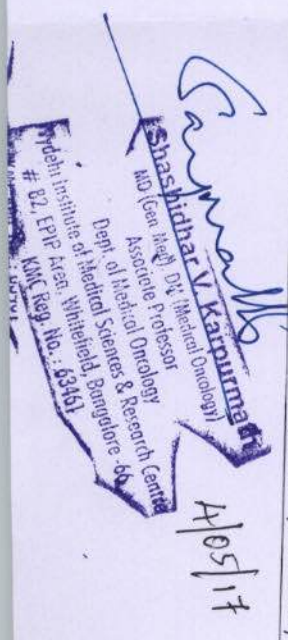 Shashidhar V. Karpurmath
MD (Gen Med), DM (Medical Oncology)
Associate Professor
Dept. of Medical Oncology
Vydehi Institute of Medical Sciences & Research Centre
# 82, EPIP Area, Whitefield, Bangalore -66
KMC Reg. No. : 63461
4/05/17